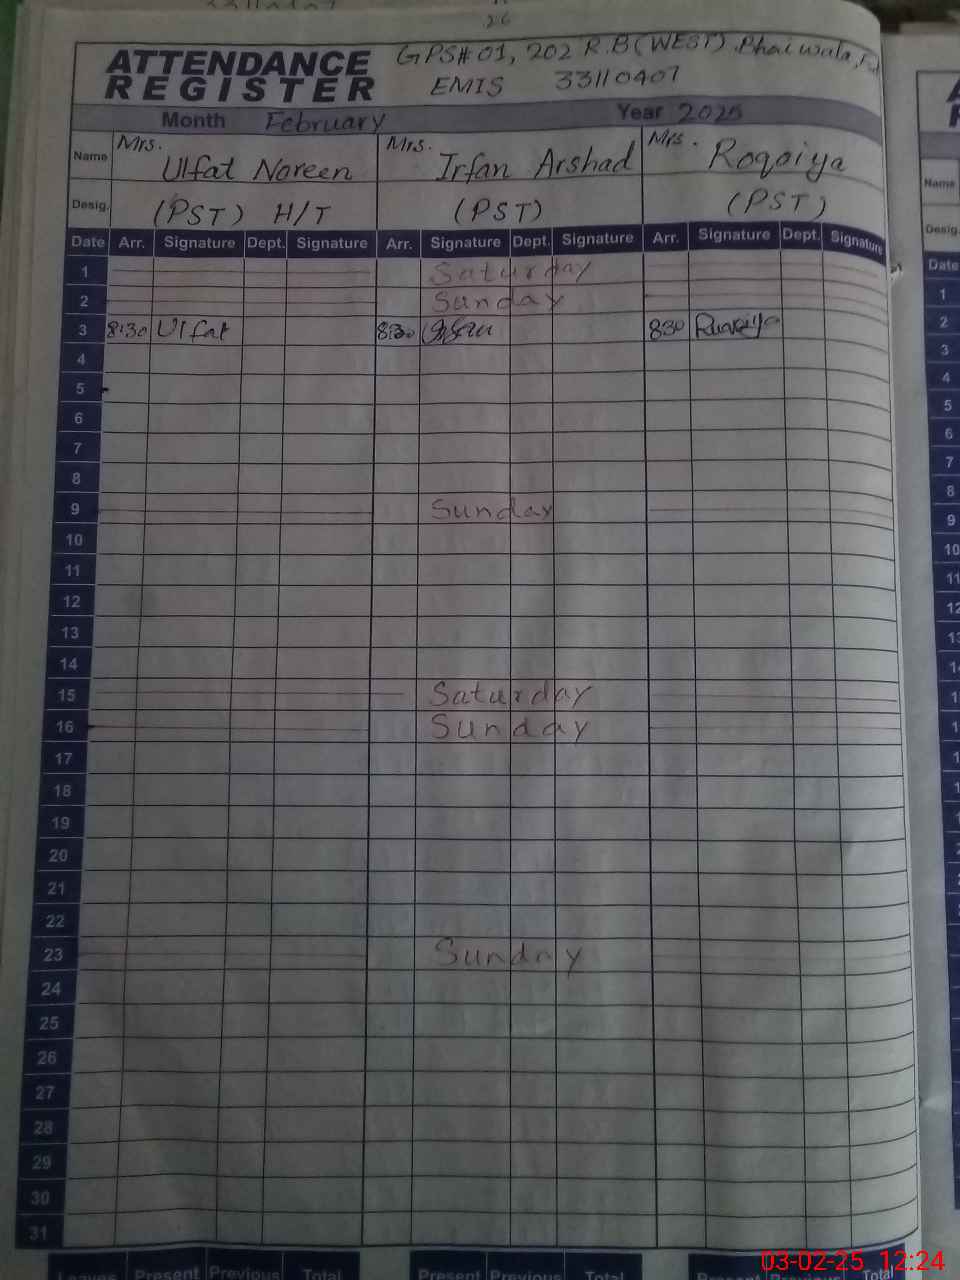 26
ATTENDANCE REGISTER
GPS# 01, 202 R.B (WEST) Bhaiwala,
EMIS 33110407
Month February Year 2025
Name Mrs. Ulfat Noreen Mrs. Irfan Arshad Mrs. Roqaiya
Desig. (PST) H/T (PST) (PST)
Date Arr. Signature Dept. Signature Arr. Signature Dept. Signature Arr. Signature Dept. Signature
1 Saturday
2 Sunday
3 8:30 Ulfat 8:30 830
4
5
6
7
8
9 Sunday
10
11
12
13
14
15 Saturday
16 Sunday
17
18
19
20
21
22
23 Sunday
24
25
26
27
28
29
30
31
Leaves Present Previous Total Present Previous Total Present Previous Total
Name
Desig.
Date
1
2
3
4
5
6
7
8
9
10
11
12
03-02-25 12:24